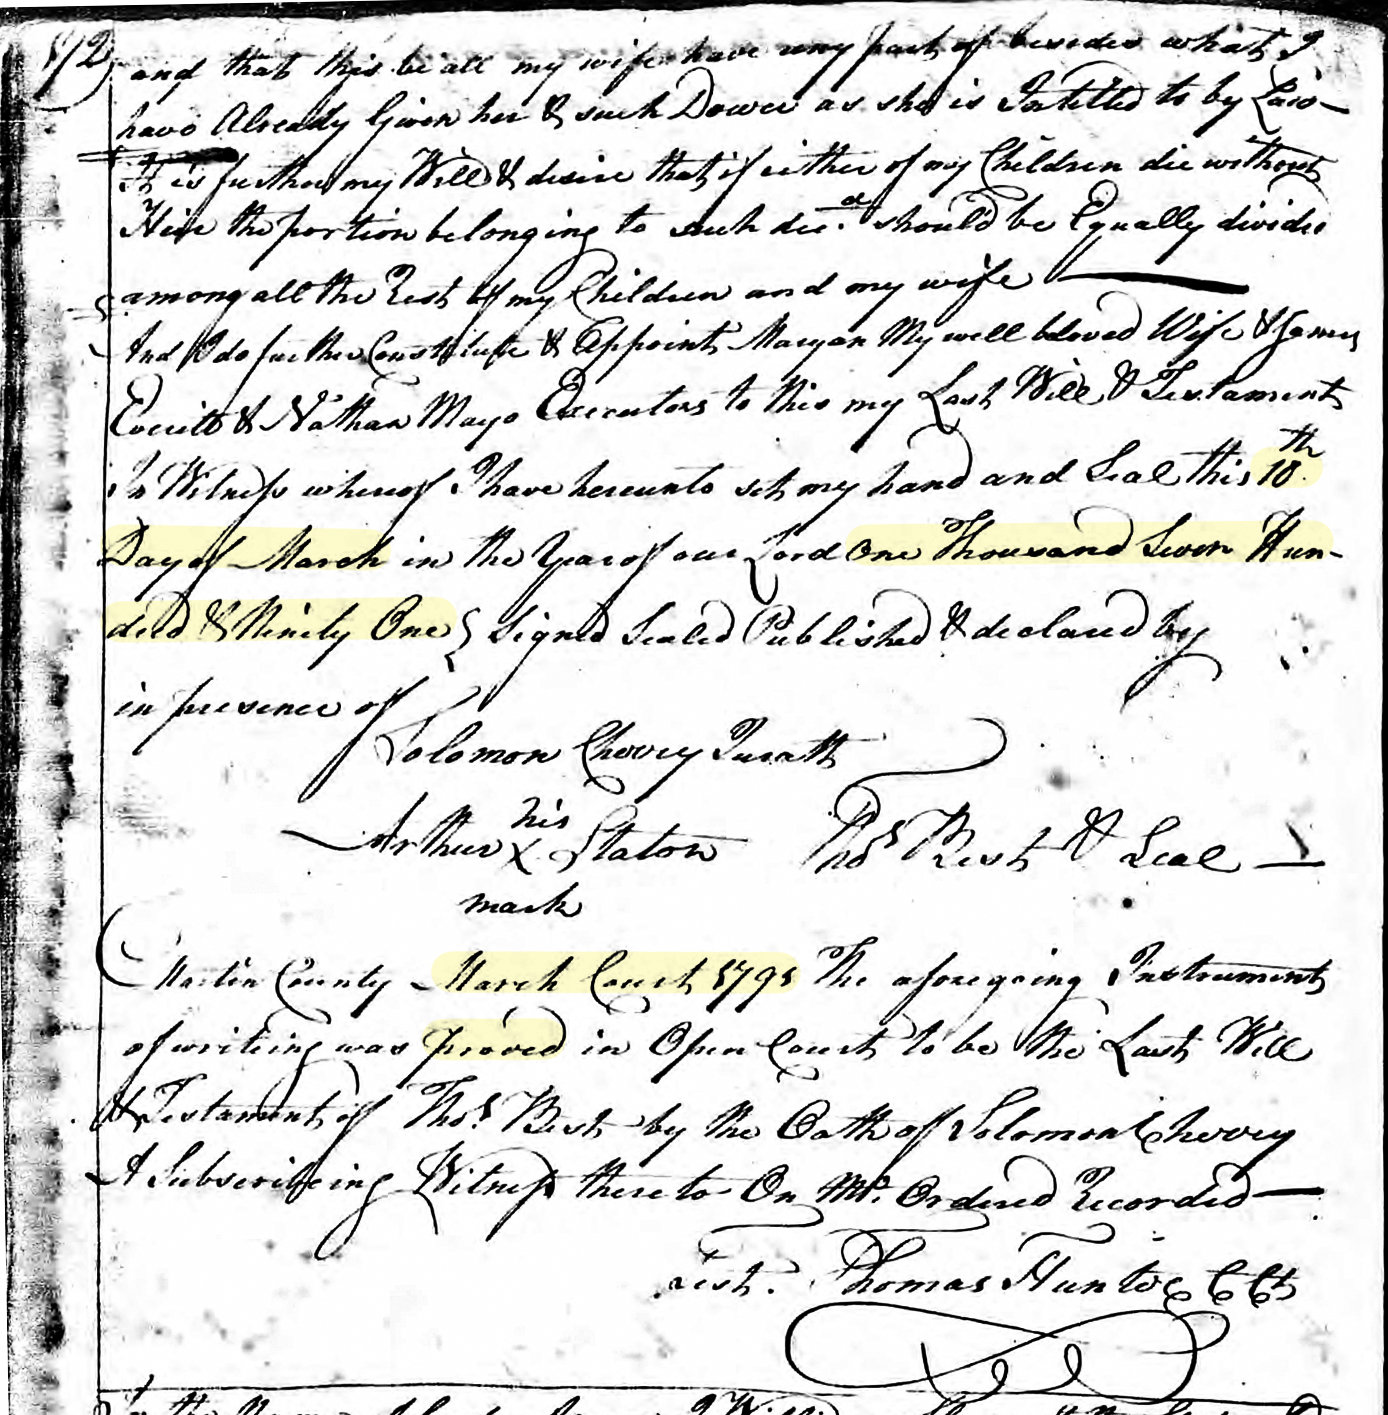 and that this be all my wife have any part of besides what I
have Already Given her & such Dower as she is Intitled to by Law
It is further my Will & desire that if either of my Children die without
Heir the portion belonging to such dec.d should be Equally divided
among all the Rest of my Children and my wife
And I do further Constitute & Appoint Margan My well beloved Wife & James
Everitt & Nathan Mayo Executors to this my Last Will & Testament
In Witness whereof I have hereunto set my hand and Seal this 10th
Day of March in the Year of our Lord One Thousand Seven Hun-
dred & Ninety One } Signed Sealed Published & declared by
in presence of
Solomon Cherry Juratt
Arthur his X mark Staton Thos Best & Seal
Martin County March Court 1791 The aforegoing Instrument
of writeing was proved in Open Court to be the Last Will
& Testament of Thos. Best by the Oath of Solomon Cherry
A Subscribeing Witness thereto On Mo. Ordered Recorded
Test. Thomas Hunter C Ct